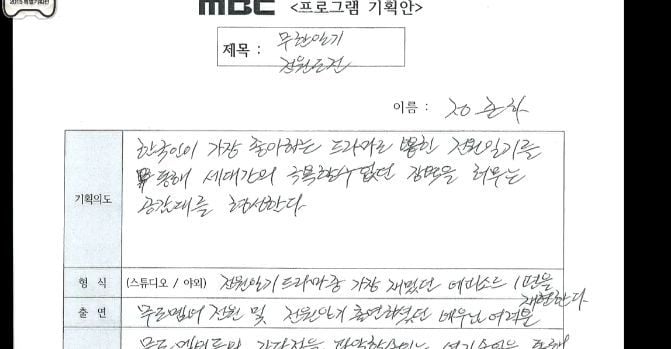 2015 특별기획전
MBC <프로그램 기획안>
제목 : 무한일기
전원도전
이름 : 정준하
기획의도
한국인이 가장 좋아하는 드라마로 뽑힌 전원일기를
통해 세대간의 극복할수 없던 장벽을 허무는
공감대를 형성한다
형 식
(스튜디오 / 야외) 전원일기 드라마중 가장 재밌던 에피소드 1편을
재현한다
출 연
무도멤버 전원 및 전원일기 출연하셨던 배우난 여러분